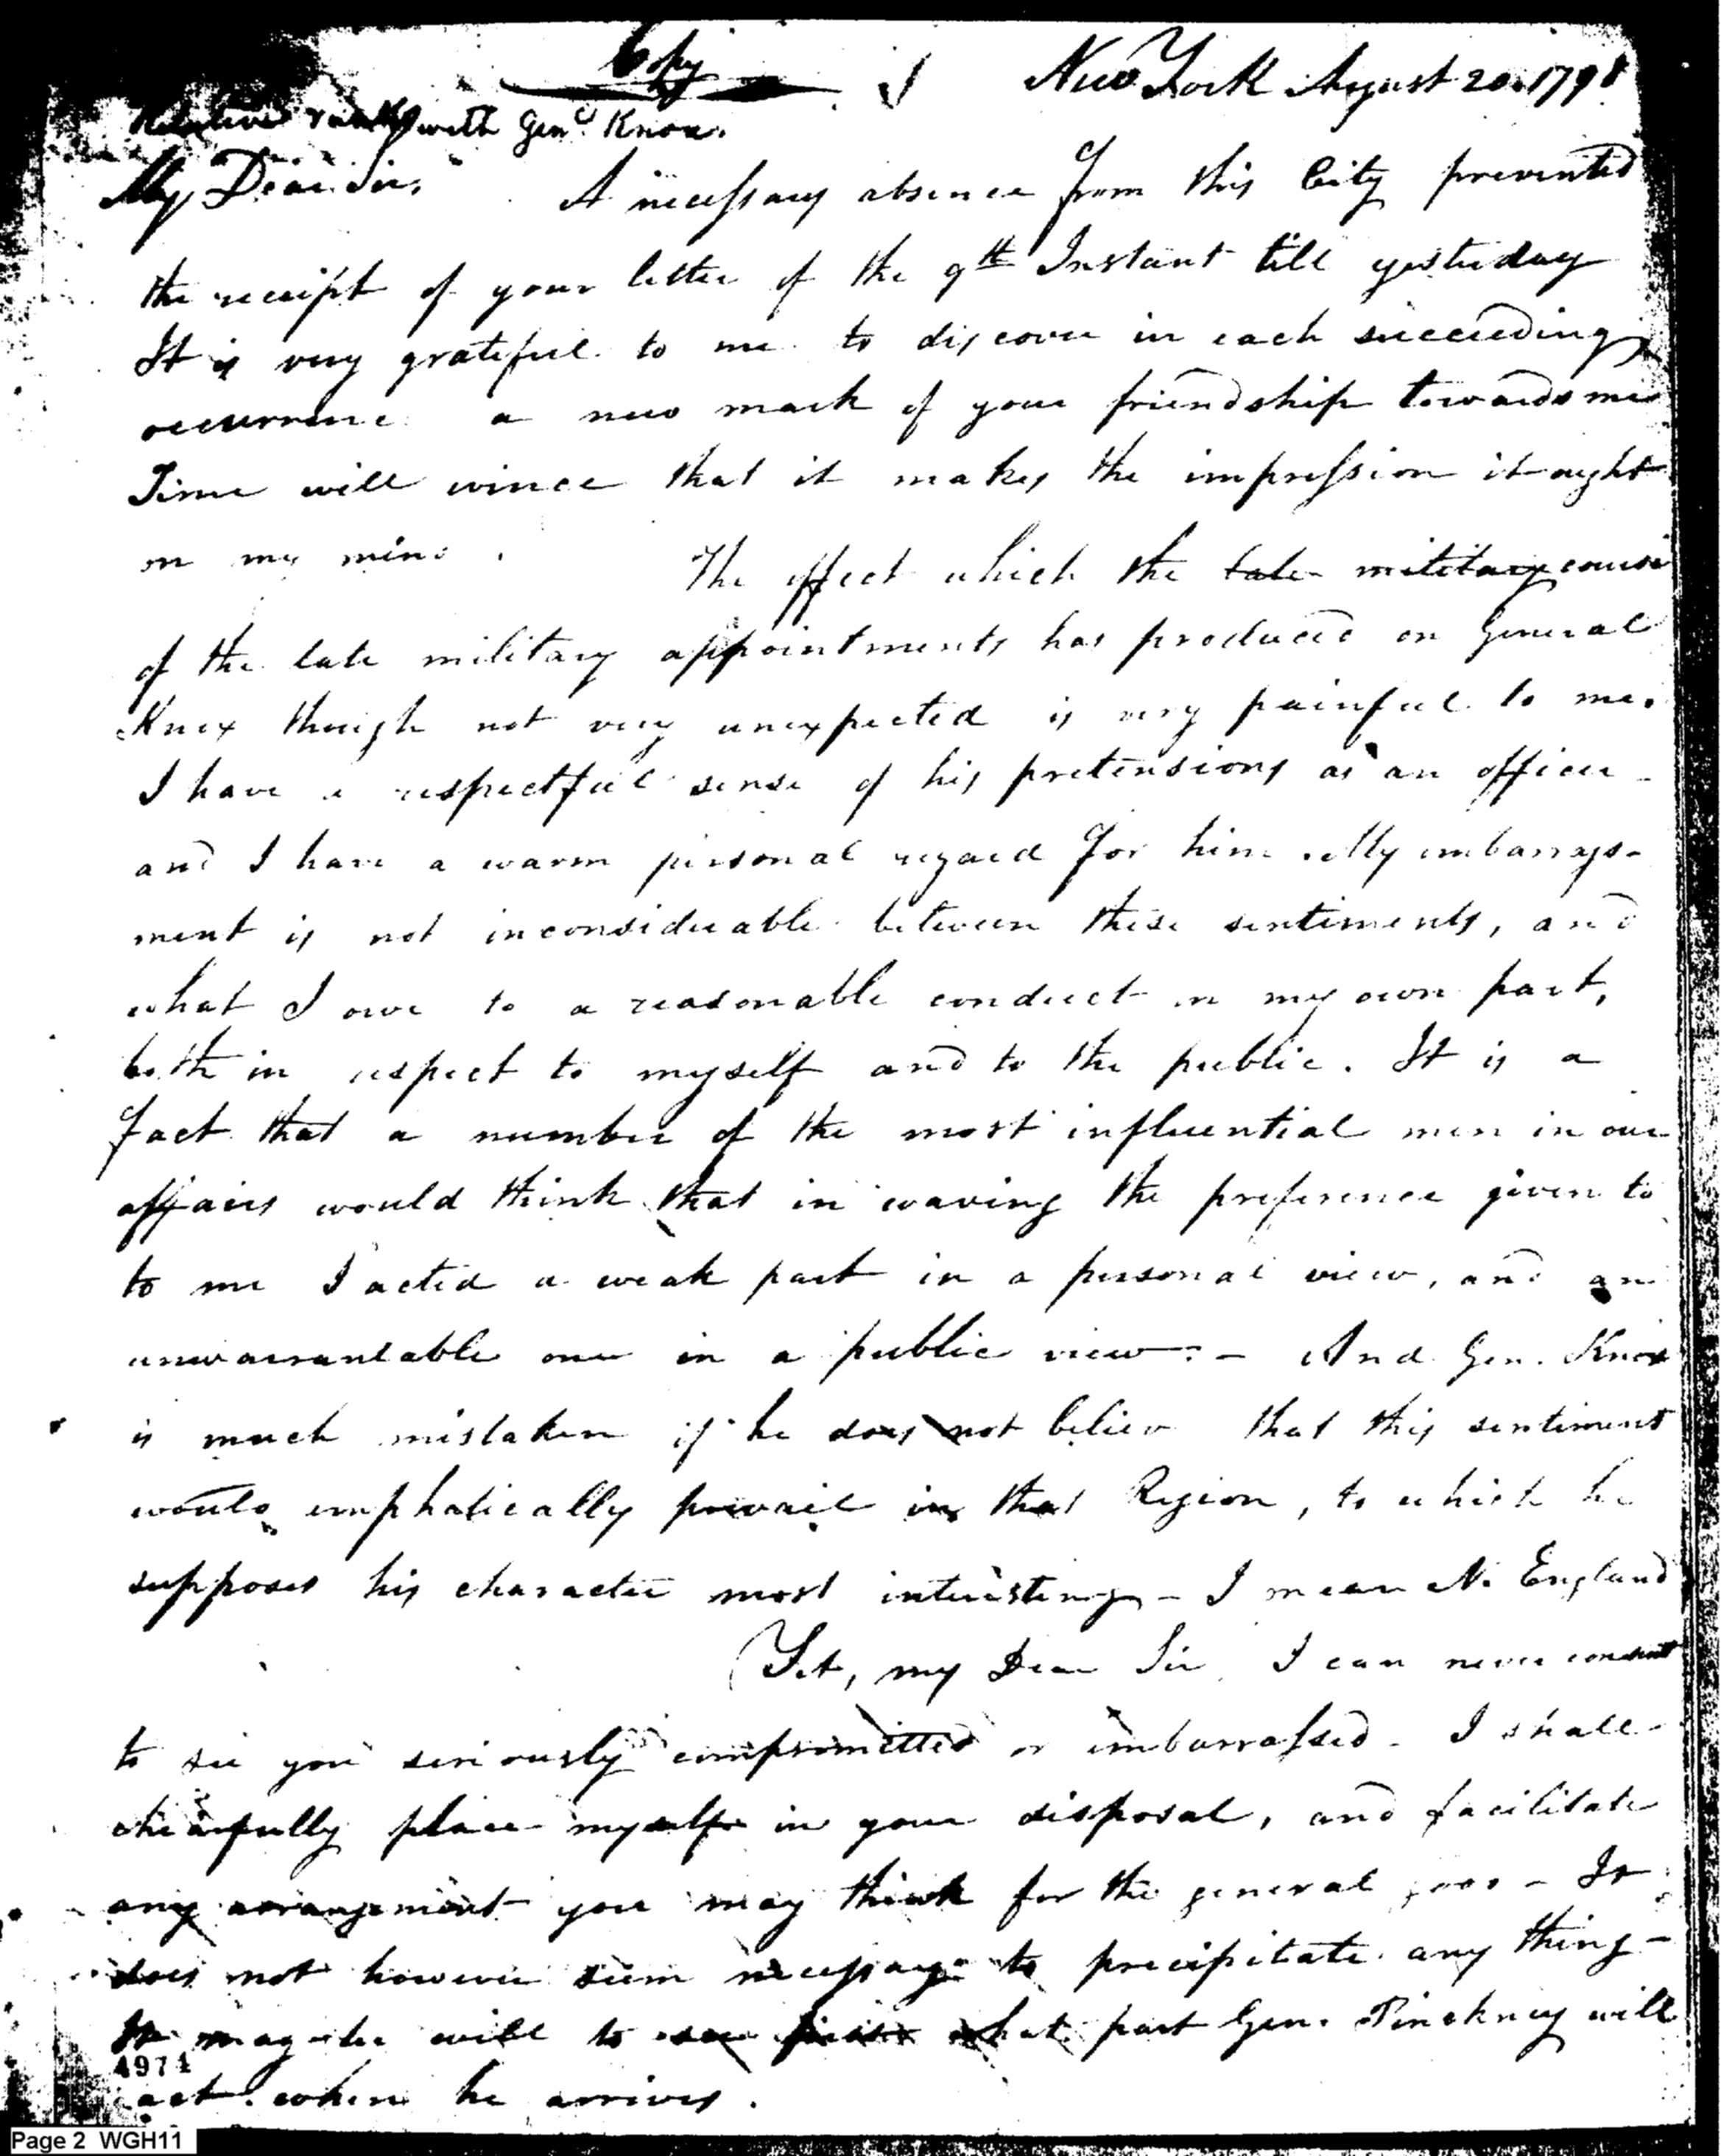 Copy
New York August 20. 1798
Relative rank with Genl. Knox.
My Dear Sir, A necessary absence from this City prevented
the receipt of your letter of the 9th Instant till yesterday
It is very grateful to me to discover in each succeeding
occurrence a new mark of your friendship towards me
Time will evince that it makes the impression it ought
on my mind.
The effect which the late military course
of the late military appointments has produced on General
Knox though not very unexpected is very painful to me.
I have a respectful sense of his pretensions as an officer
and I have a warm personal regard for him. My embarrass-
ment is not inconsiderable between these sentiments, and
what I owe to a reasonable conduct on my own part,
both in respect to myself and to the public. It is a
fact that a number of the most influential men in our
affairs would think that in waving the preference given to
to me I acted a weak part in a personal view, and an
unwarrantable one in a public view:- And Gen. Knox
is much mistaken if he does not believe that this sentiment
would emphatically prevail in that Region, to which he
supposes his character most interesting - I mean N. England
Yet, my Dear Sir, I can never consent
to see you seriously compromitted or embarrassed - I shall
chearfully place myself in your disposal, and facilitate
any arrangement you may think for the general good - It
does not however seem necessary to precipitate any thing -
It may be well to see first what part Gen. Pinckney will
4974
act when he arrives.
Page 2 WGH11